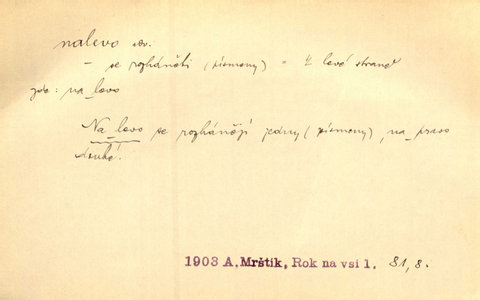 nalevo adv.
– se rozháněti (písmeny) = k levé straně
zde: na_levo
Na_levo se rozhánějí jedny (písmeny), na_pravo
druhé.
1903 A. Mrštík, Rok na vsi 1. 81, 8.